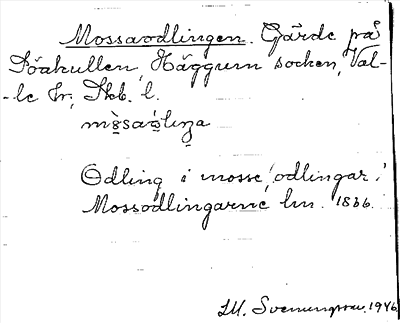 Mossaodlingen. Gärde på
Söakullen, Häggum socken, Val-
-le hr, Skb. l.
Odling i mosse, odlingar i
Mossodlingarne lm. 1866.
M. Svenungsson 1946